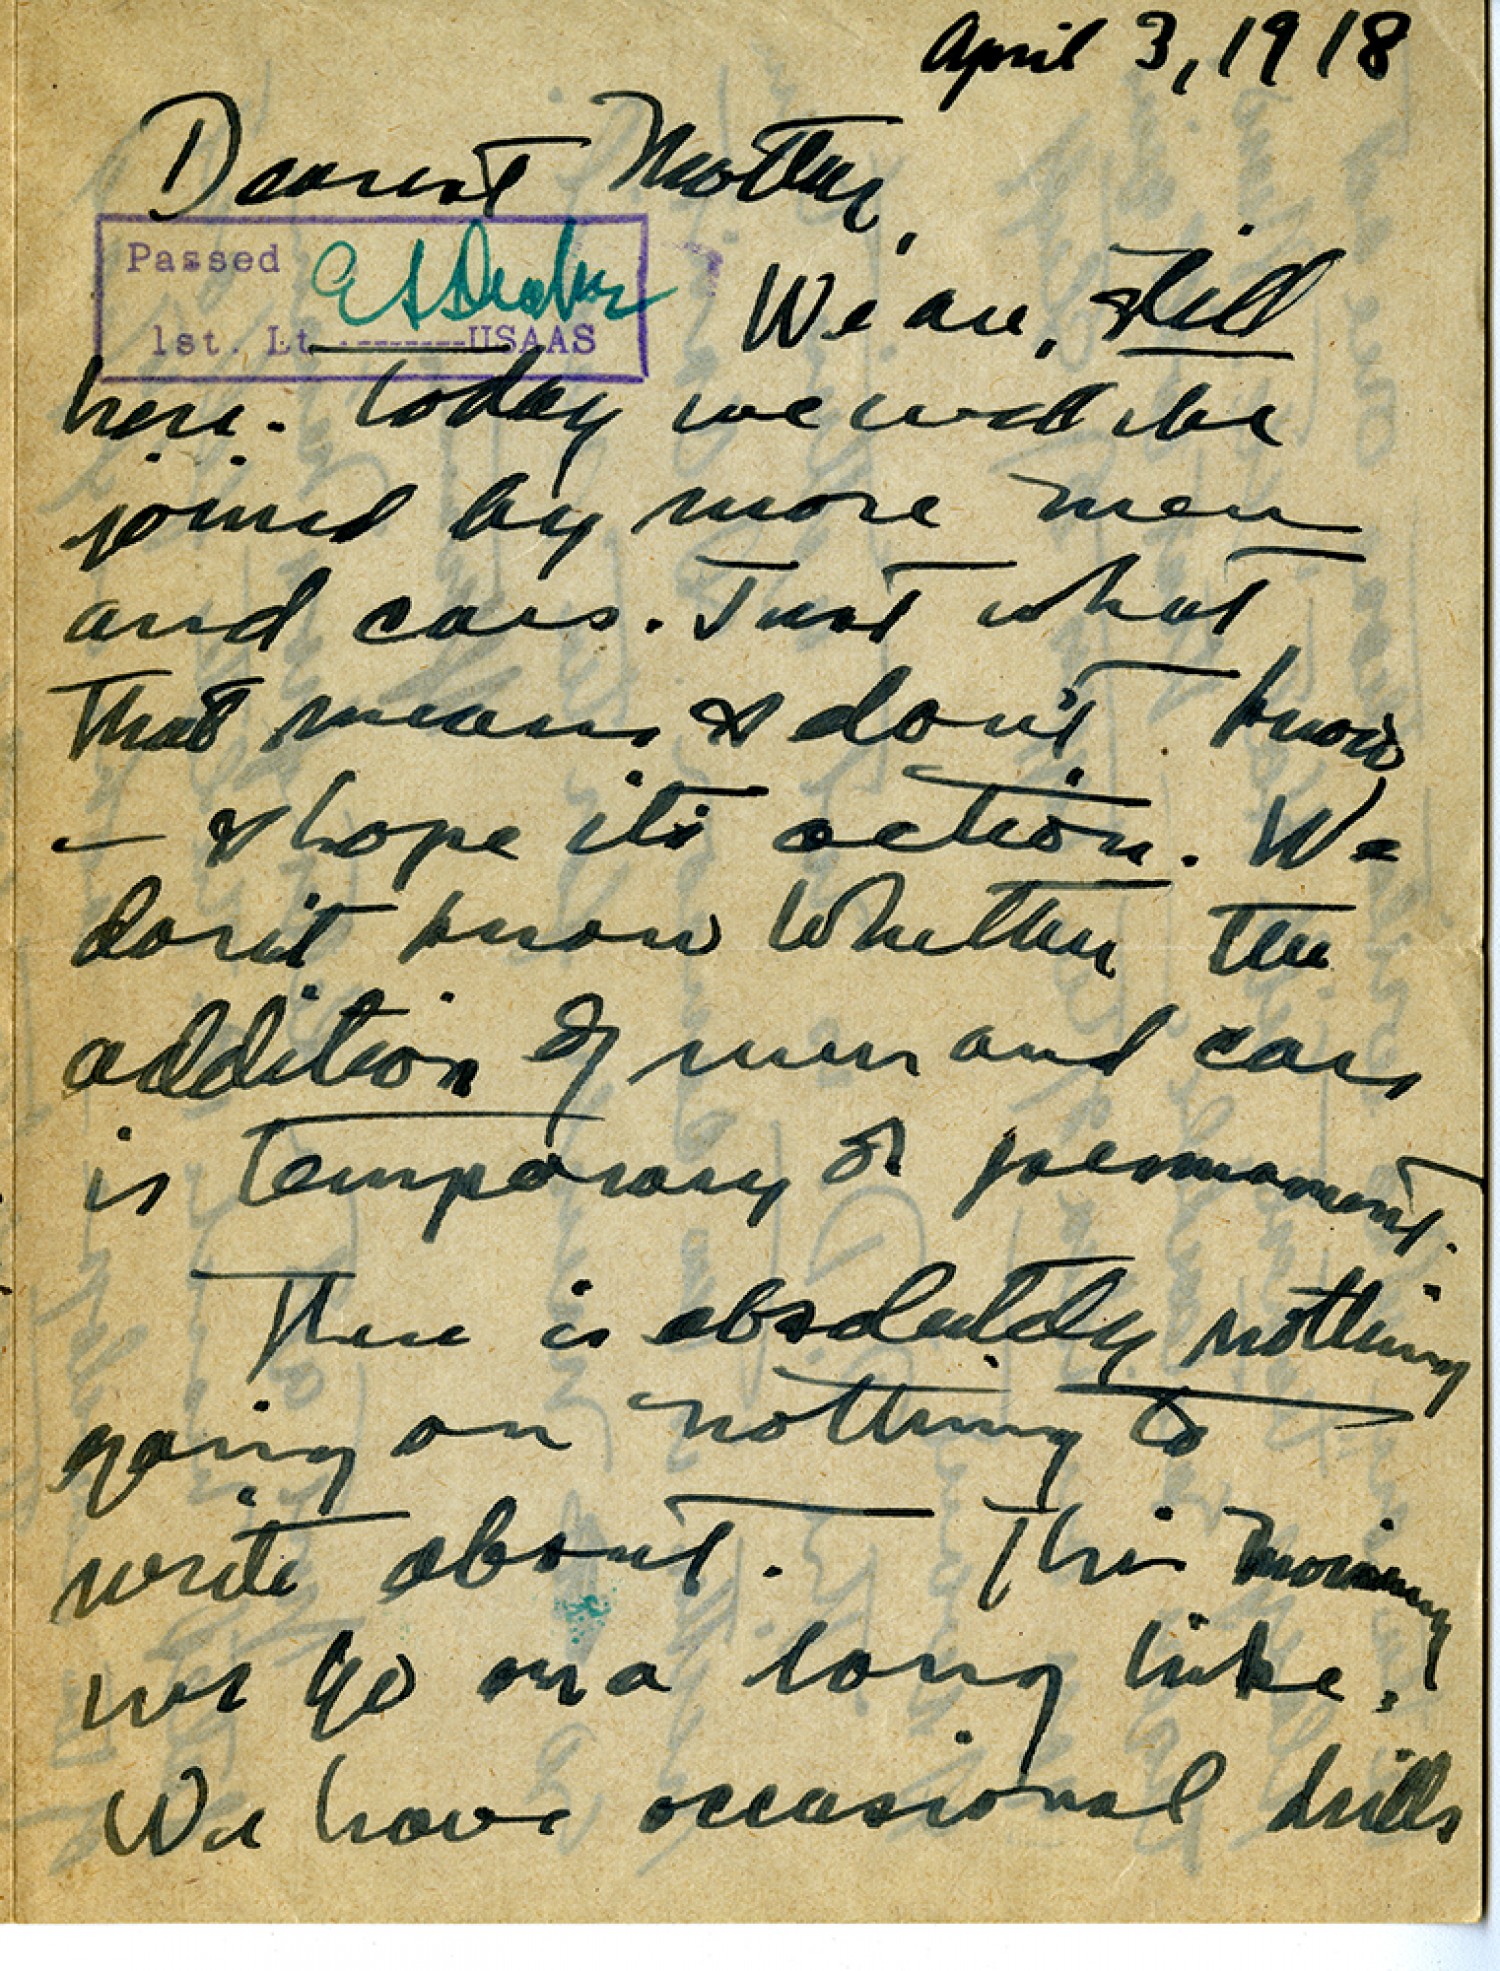 April 3, 1918
Dearest Mother,
Passed
1st. Lt. --------USAAS
We are, still
here. Today we will be
joined by more men
and cars. Just what
that means I don't know
— I hope it's action. We
don't know whether the
addition of men and cars
is temporary or permanent.
There is absolutely nothing
going on nothing to
write about. This morning
we go on a long hike.
We have occasional drills